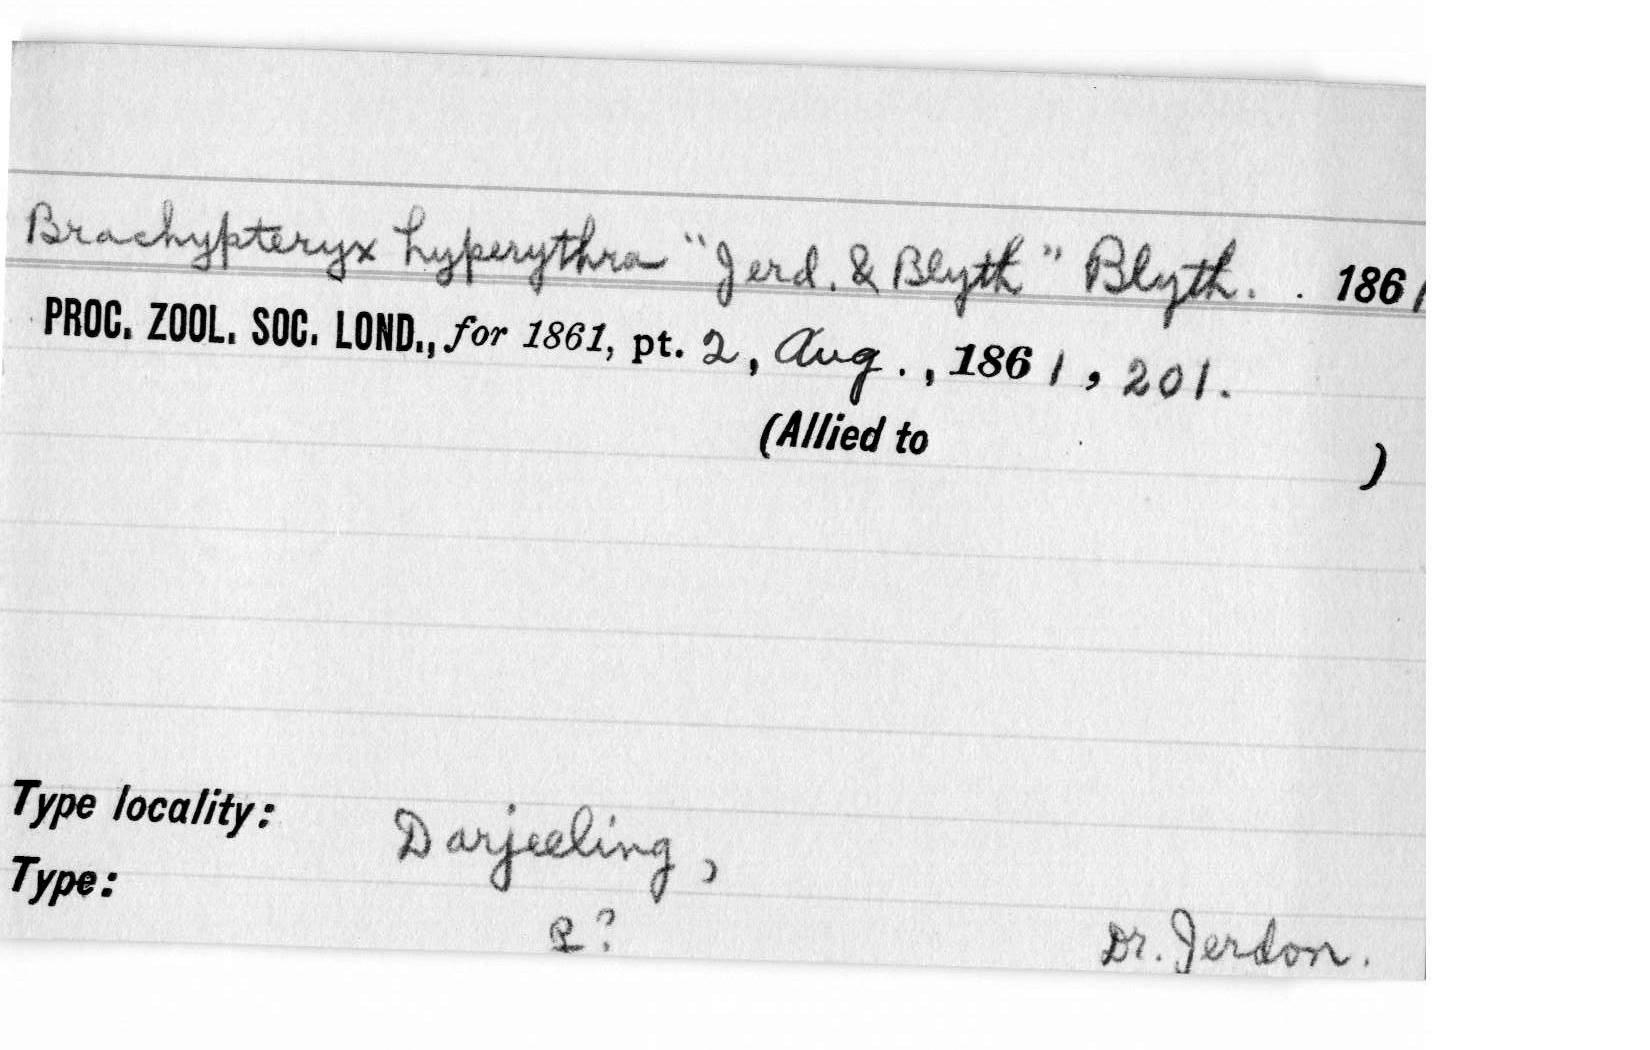 Brachypteryx hyperythra "Jerd. & Blyth" Blyth. . 1861
PROC. ZOOL. SOC. LOND., for 1861, pt. 2, Aug., 1861, 201.
(Allied to )
Type locality: Darjeeling,
Type: ?
Dr. Jerdon.